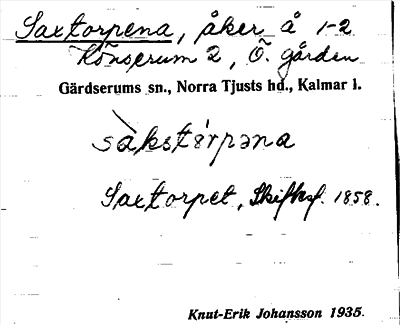 Saxtorpena, åker å 1-2
Hönserum 2, Ö. gården
Gärdserums sn., Norra Tjusts hd., Kalmar l.
sàkstórpəna
Saxtorpet, Skifksf. 1858.
Knut-Erik Johansson 1935.